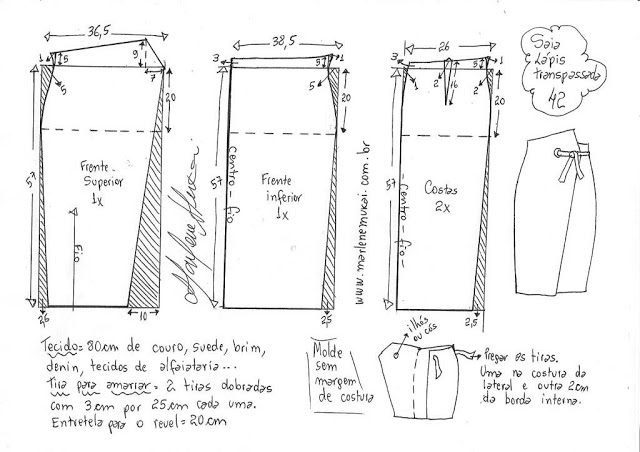 36,5
1
5
9
7
5
20
57
Frente
Superior
1x
Fio
2,6
10
38,5
3
5
1
5
20
57
Centro - fio
Frente
inferior
1x
2,5
www.marlenemukai.com.br
26
3
1
2
16
5
1
2
20
57
- Centro - fio -
Costas
2x
3,5
Saia
Lápis
transpassada
42
Tecido = 80cm de couro, suede, brim,
denin, tecidos de alfaiataria...
Tira para amarrar = 2 tiras dobradas
com 3cm por 25cm cada uma.
Entretela para o revel = 20cm
Molde
sem
margem
de costura
ilhós
ou cós
Pregar as tiras.
Uma na costura da
lateral e outra 2cm
da borda interna.